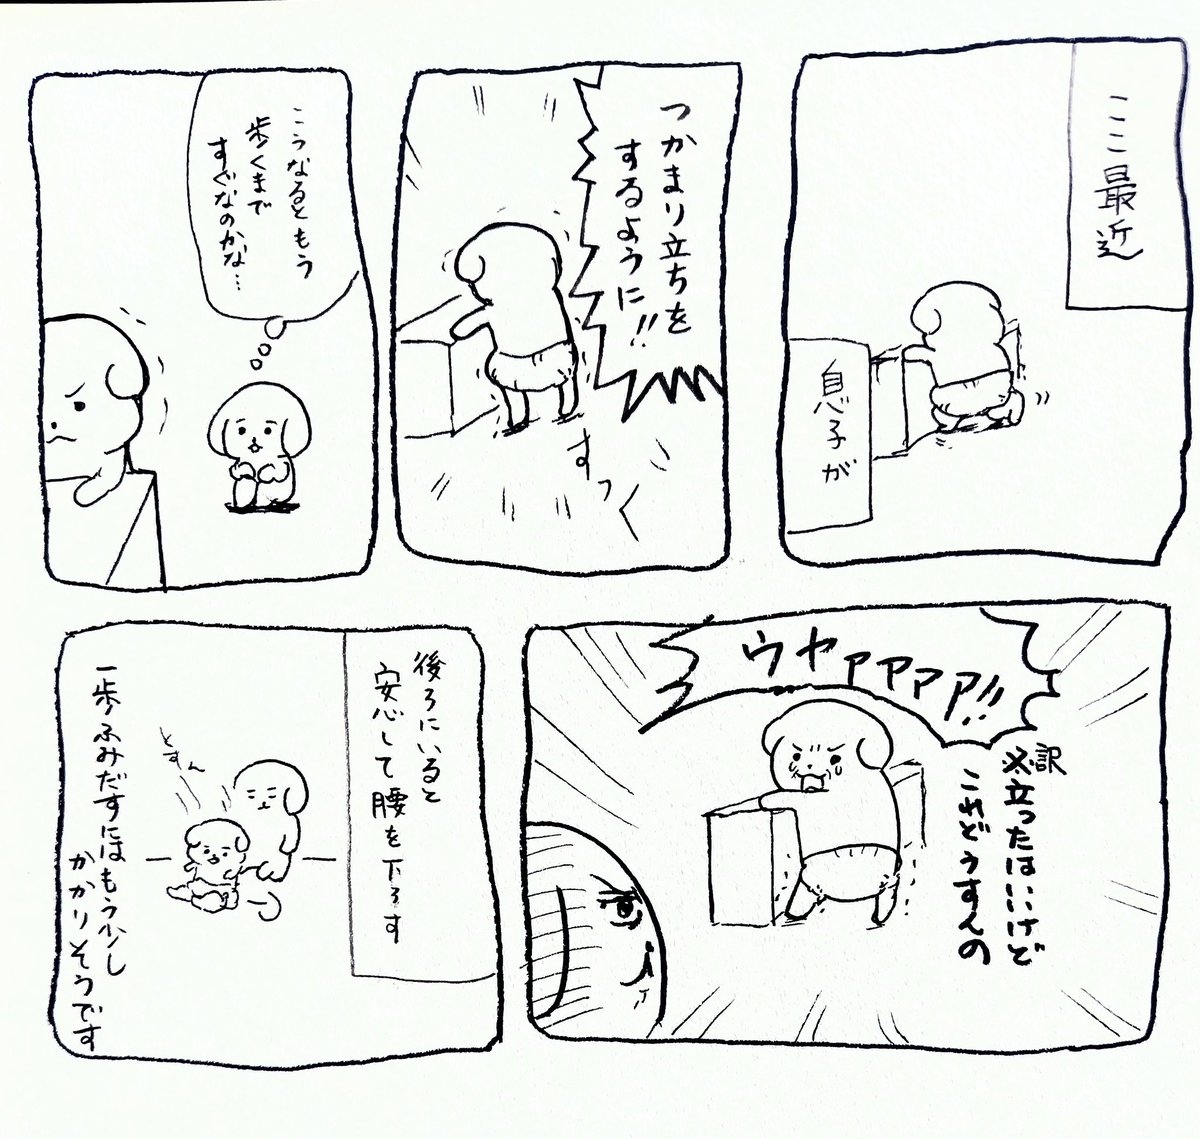 ここ最近
息子が
つかまり立ちを
するように!!
すっく
こうなるともう
歩くまで
すぐなのかな…
ウヤァァァァ!!
※訳
立ったはいいけど
これどうすんの
後ろにいると
安心して腰を下ろす
とすん
一歩ふみだすにはもう少し
かかりそうです